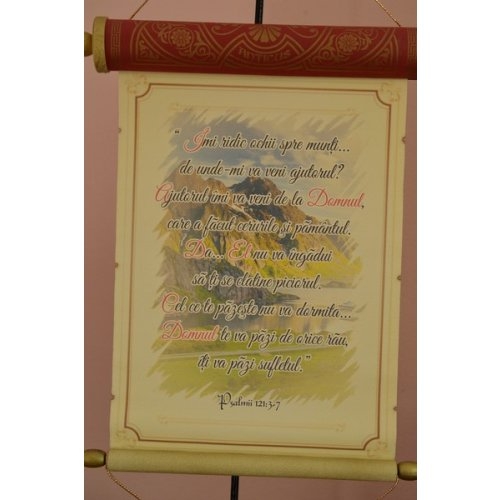 ANTICUS
“Îmi ridic ochii spre munți...
de unde-mi va veni ajutorul?
Ajutorul îmi va veni de la Domnul,
care a făcut cerurile și pământul.
Da... El nu va îngădui
să ți se clatine piciorul.
Cel ce te păzește nu va dormita...
Domnul te va păzi de orice rău,
îți va păzi sufletul.”
Psalmii 121:3-7